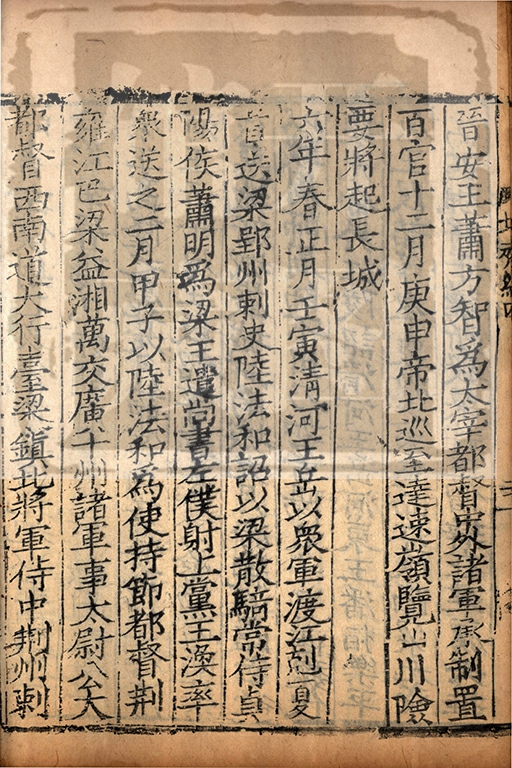 晉安王蕭方智為太宰都督中外諸軍承制置
百官十二月庚申帝北巡至達速嶺覽山川險
要將起長城
六年春正月壬寅清河王岳以衆軍渡江剋夏
首送梁郢州刺史陸法和詔以梁散騎常侍貞
陽侯蕭明為梁王遣尚書左僕射上黨王渙率
衆送之二月甲子以陸法和為使持節都督荆
雍江巴梁益湘萬交廣十州諸軍事太尉公大
都督西南道大行臺梁鎮北將軍侍中荆州刺